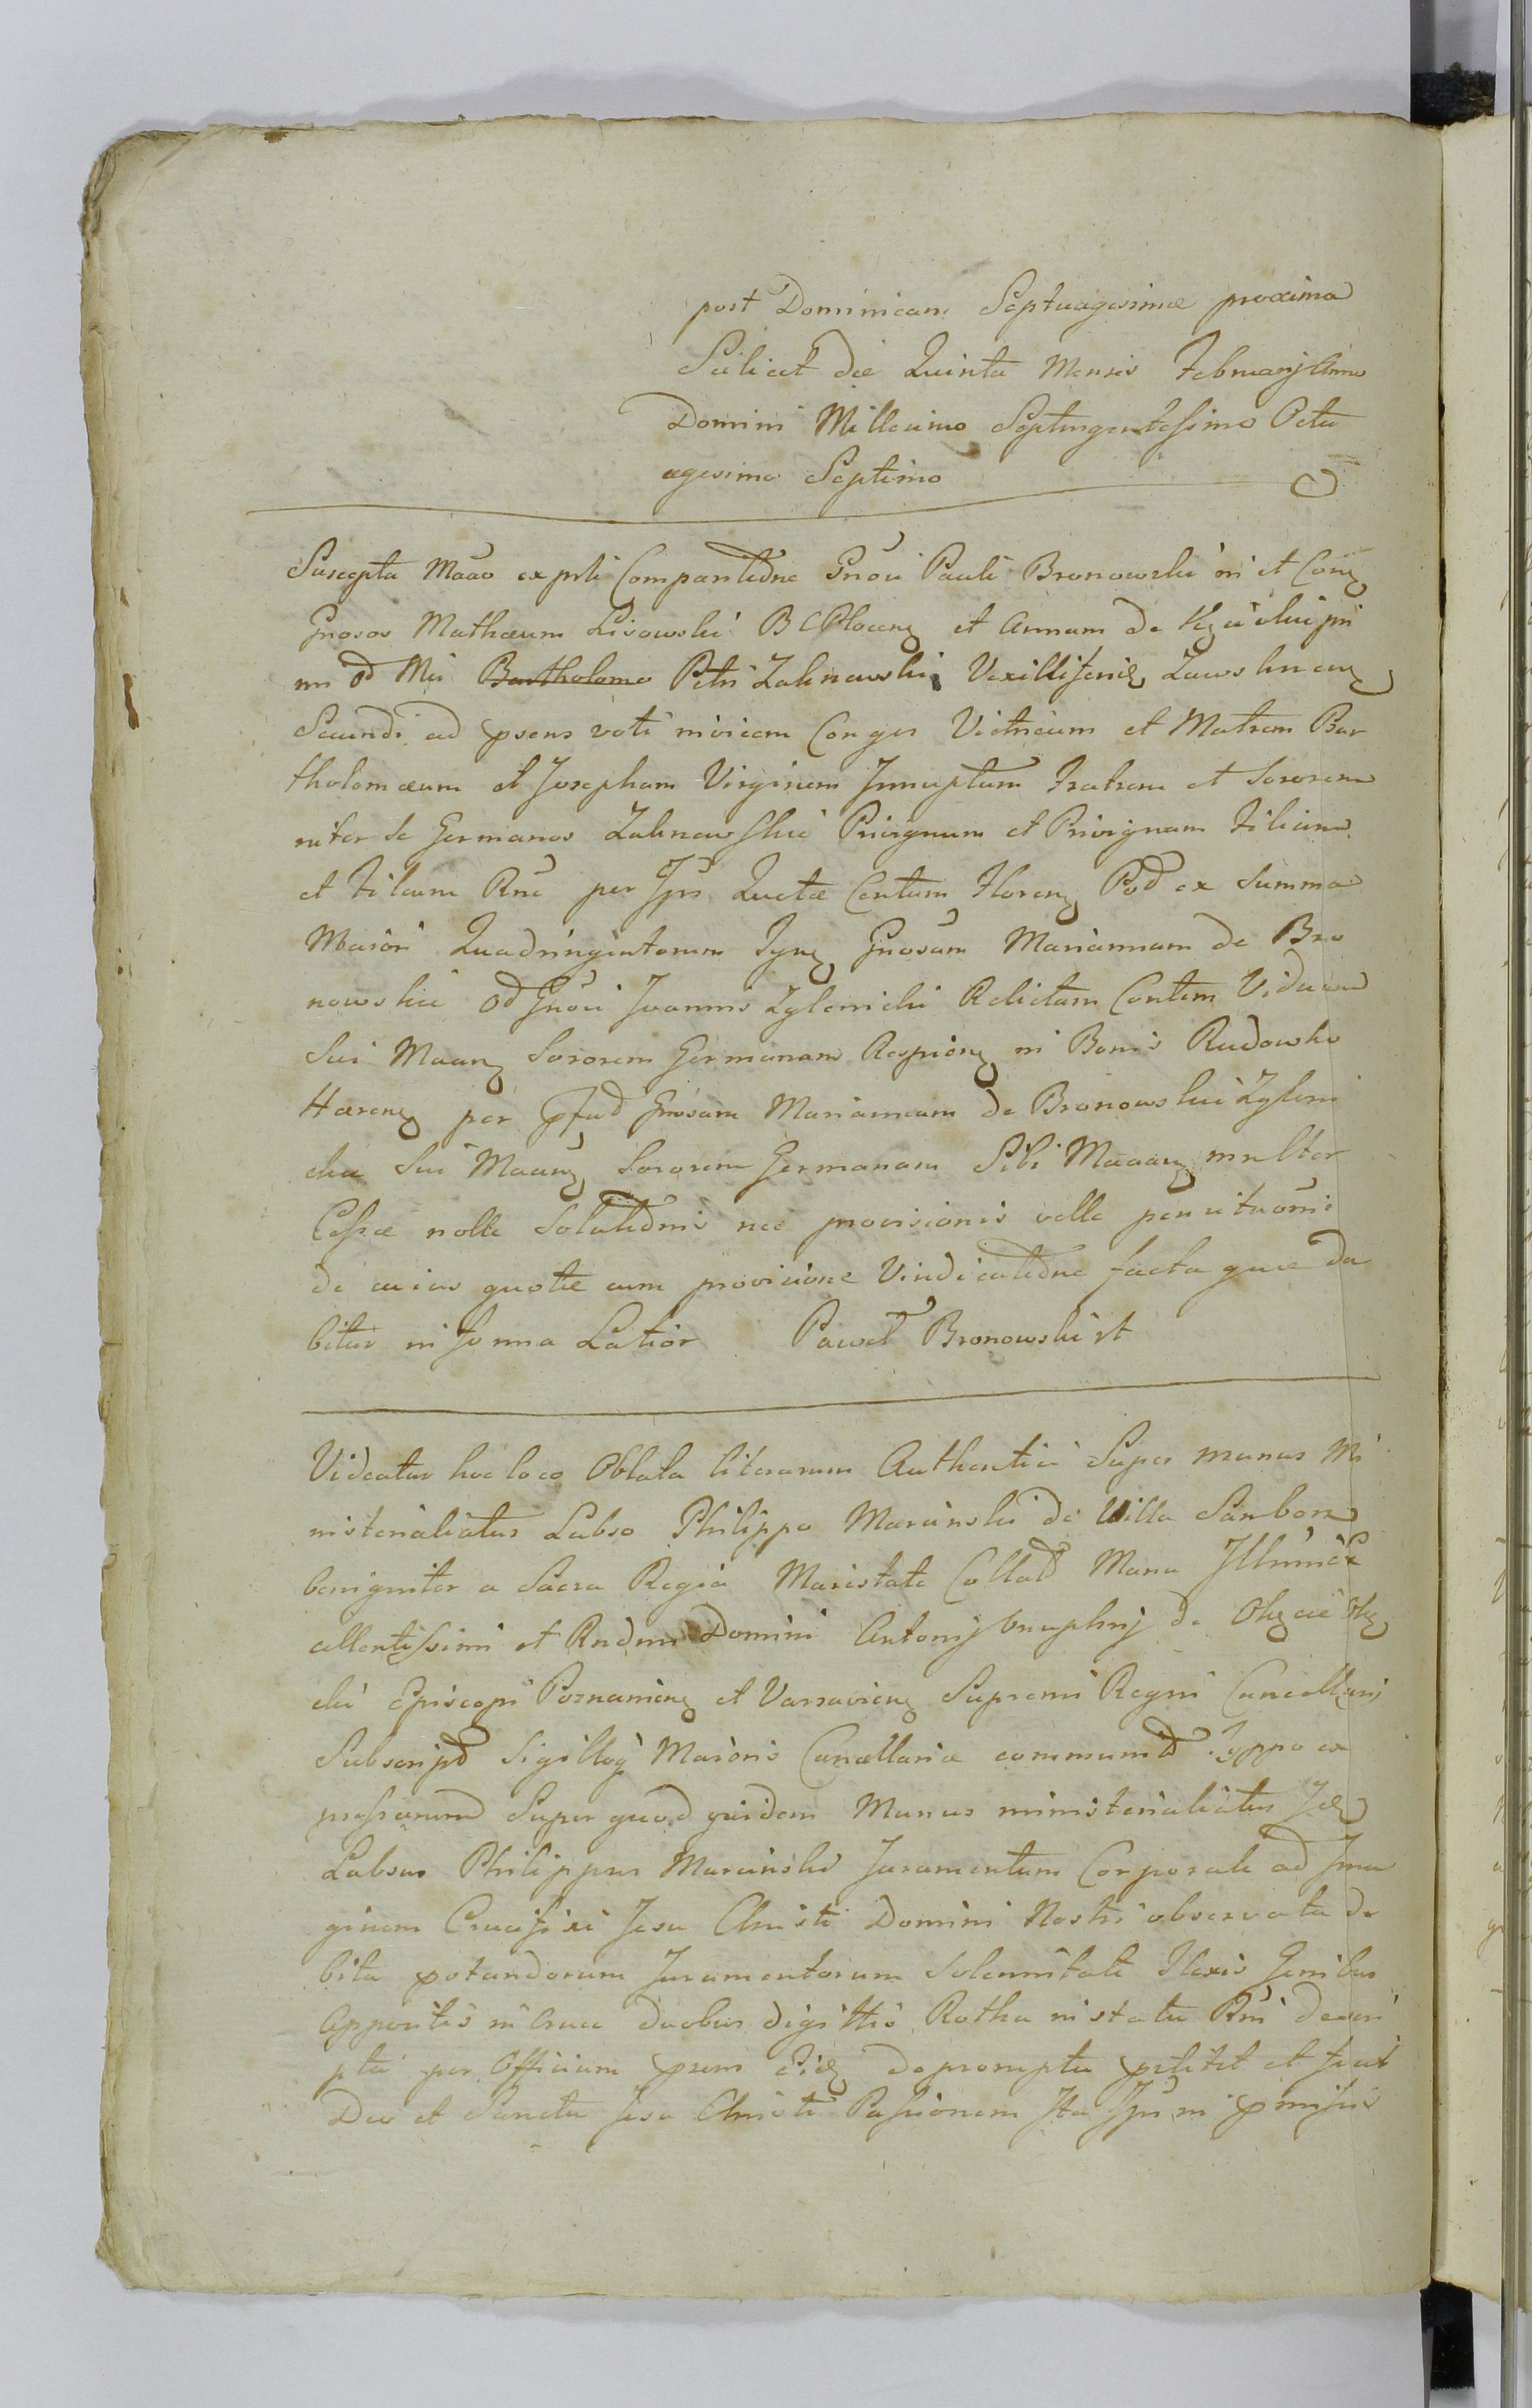 post Dominicam Septuagesimæ proxima
Scilicet die Quinta Mensis Februarij Anno
Domini Millesimo Septingentesimo Octu
agesimo Septimo
Suscepta Maāo ex prti Comparitōne Gnōsi Pauli Bronowski in et Conꝫ
Gnosos Mathæum Lisowski B C Plocenꝫ et Annam de
Mci Bartholome Petri Zaknowski Vexilliferid Zawskrnenꝫ
Secundi ad psens voti invicem Conges Vitricum et Matrem Bar
tholomæum et Josepham Virginem Innuptam Fratrem et Sororem
inter se Germanos Zaknowskie Privignum et Privignam Filium
et Filiam Rnē per Ipēs Quotæ Centum Florenꝫ Pod ex Summa
Maiori Quadringentorum Gnosam Mariannam de Bro
nowskie od Gnōsi Joannis Zglenicki Relictam Contem Viduam
Sui Maanꝫ Sororem Germanam Respicienꝫ in Bonis Rudowko
Hærenꝫ per Gnosam Mariannam de Bronowskie Zgleni
cka Sui Maanꝫ Sororem Germanam Sibi Maaanꝫ inslter
Cessæ nolle Solutiōnis nec provisionis velle
de cuius quotæ cum provisione Vindicatiōne facta quæ da
bitur in forma Latiōr Paweł Bronowski rt
Videatur hoc loco Oblata literarum Authentici Super munus Mi
nisterialiatus Labso Philippo Marcinski de Villa Sambora
benigniter a Sacra Regia Maiestate Collat Manu Illūmi Ex
cellentissimi et Rndmi Domini Antonij Onuphrij de Okęcie Okę
cki Episcopi Poznanienꝫ et Varsavienꝫ Supremi Regni Cancellarij
Subscript Sigilloq̄ Maioris Cancellariæ communit ex
pressarum Super quod quidem Munus ministerialiatus Idꝫ
Labsus Philippus Marcinski Juramentum Corporale ad Ima
ginem Crucifixi Jesu Christi Domini Nostri observata de
bita pstandorum Juramentorum Solennitate Flexis Genibus
Appositis in Cruce duobus digittis Rotha in statu Rni descri
pta per Officium psens Eidꝫ deprompta pstitit et fecit
Deo et Sancta Jesu Christi Passionem Ita Ipsum in pmissis